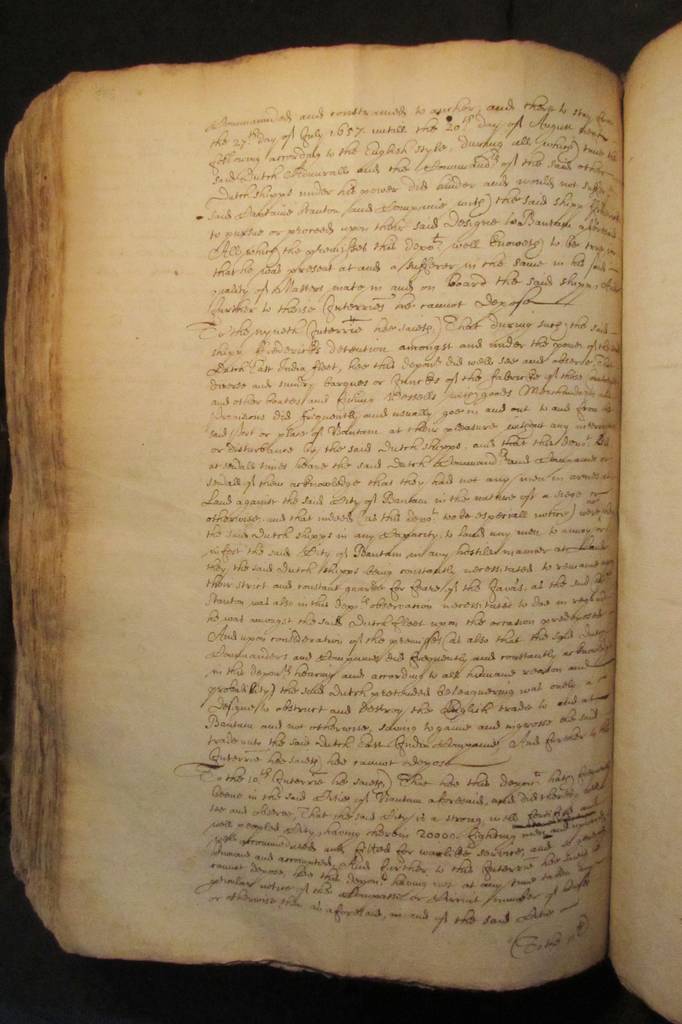 Commaunded and constrained to anchor, and there to stay from
the 27th day of July 1657 untill the 20th day of August then
following according to the English style, during all which time the
said Dutch Admirall and the Commandrs of the said other
Dutch shipps under his power did hinder and would not suffer
said Captaine Stanton (and Companie with) the said shipp
to pursue or proceed upon their said designe to Bantam aforesaid
All which the premisses this depot well knoweth to be true
that he was present at and a sufferer in the same in his said
quality of Masters mate in and on board the said shipp, And
further to these Interries he cannot depose
To the nyneth Interrie hee saieth, That during such the said
shipp Fredericks detention amongst and under the power of the said
Dutch East India fleet, hee this deponent did well see and observe That
diverse and sundry barques or Juncks of the fabricke of those
and other boates and fishing vessells with goods Merchandizes and
provisions did frequently and usually goe in and out to and from the
said Port or place of Bantam at their pleasure without any
or disturbance by the said Dutch shipps, and that this depot did
at severall times heare the said Dutch Commandr and Companie or
severall of them acknowledge that they had not any men in armes at
Land against the said City of Bantam in the nature of a siege or
otherwise, and that indeed (as this depot tooke especiall notice) were
the said Dutch shipps in any Capacity to land any men to annoy or
infest the said City of Bantam in any hostile manner at Land
they the said Dutch shipps being constantly necessitated to remaine upon
their strict and constant guarde for feare of the Javas, as the said
Stanton was also in this depots observation necessitated to doe in regard
he was amongst the said Dutch fleet upon the occasion predeposed
And upon consideration of the premisses (as also that the said Dutch
Commanders and Companie did frequently and constantly acknowledge
in this deponts hearing and according to all humane reason and
probability) the said Dutch pretended beleaguering was onely a
designe to obstruct and destroy the English trade to and at
Bantam and not otherwise, saving to gaine and ingrosse the said
trade unto the said Dutch East India Companie, And further to this
Interrie hee saieth hee cannot depose
To the 10th Interrie he saieth, That hee this deponent hath frequently
beene in the said Citie of Bantam aforesaid, and did there well
see and observe, That the said City is a strong, well fortified and
well peopled City, having therein 20000 fighting men
well accoutred and fitted for warlike service, and so generally
and accompted, And further to this Interrie hee saieth he
cannot depose, hee this deponent having not at any time taken
peculiar notice of the or number of
or otherwise then as aforesaid, in and of the said Citie
(To the 11th